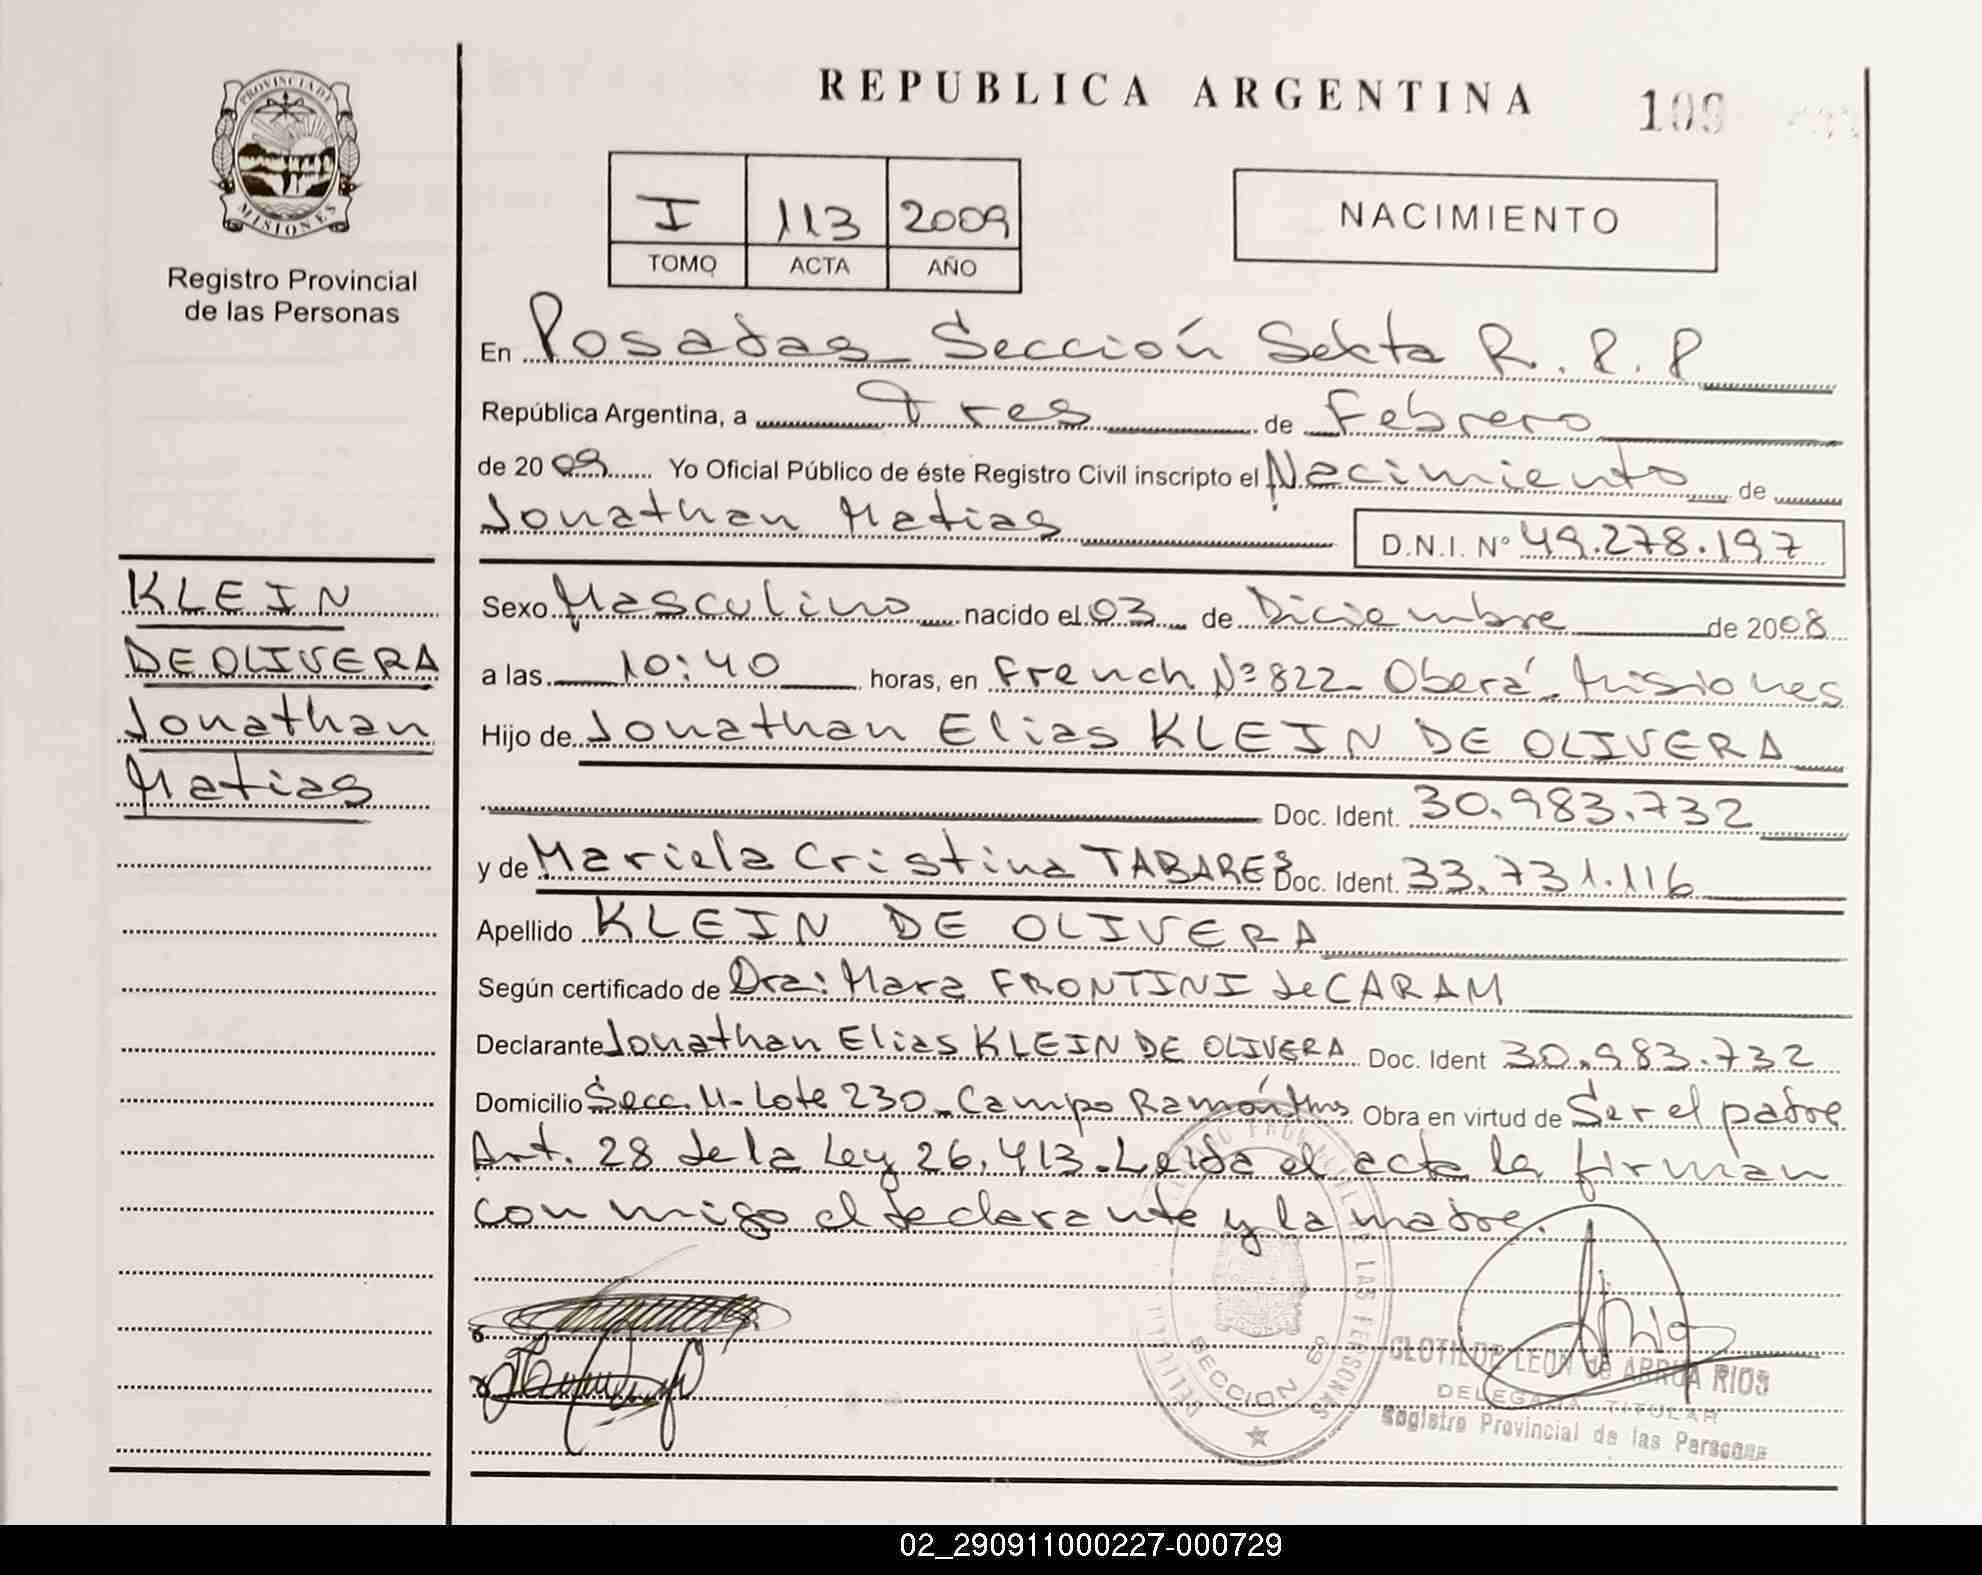 REPUBLICA ARGENTINA
109
PROVINCIA DE
MISIONES
Registro Provincial
de las Personas
I 113 2009
TOMO ACTA AÑO
NACIMIENTO
En Posadas Sección Sexta R.P.P
República Argentina, a Tres de Febrero
de 2009 Yo Oficial Público de éste Registro Civil inscripto el Nacimiento de
Jonathan Matias D.N.I. Nº 49.278.197
KLEIN
DE OLIVERA
Jonathan
Matias
Sexo Masculino nacido el 03 de Diciembre de 2008
a las 10:40 horas, en French Nº 822- Oberá- Misiones
Hijo de Jonathan Elias KLEIN DE OLIVERA
Doc. Ident. 30.983.732
y de Mariela Cristina TABARES Doc. Ident. 33.731.116
Apellido KLEIN DE OLIVERA
Según certificado de Dra: Mara FRONTINI de CARAM
Declarante Jonathan Elias KLEIN DE OLIVERA Doc. Ident 30.983.732
Domicilio Secc. Lote 230- Campo Ramón Mns Obra en virtud de Ser el padre
Art. 28 de la Ley 26.413-Leida el acta la firman
con migo el declarante y la madre.
DE LAS PERSONAS
SECCION 6º
CLOTILDE LEON de ARRUA RIOS
DELEGADA TITULAR
Registro Provincial de las Personas
02_290911000227-000729